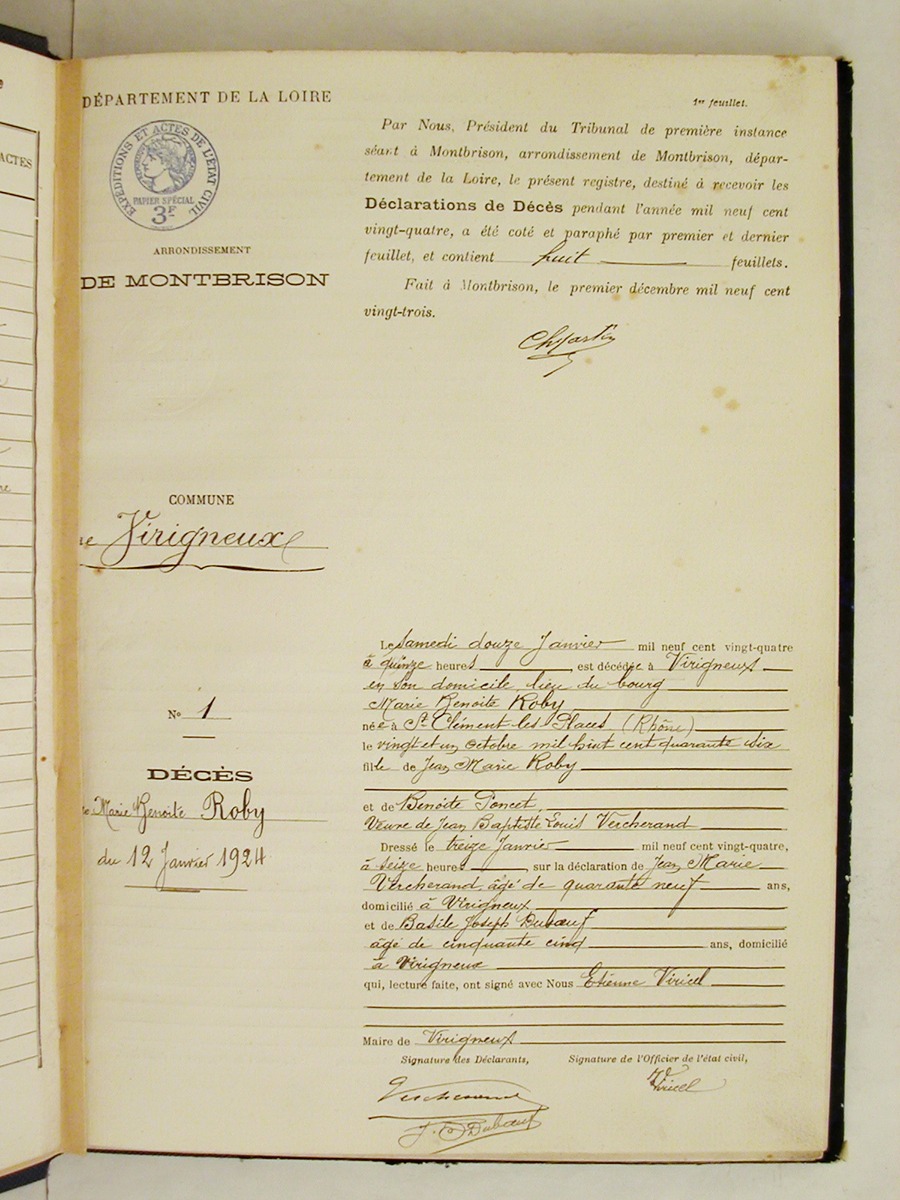 ACTES
DÉPARTEMENT DE LA LOIRE
EXPÉDITIONS ET ACTES DE L'ÉTAT CIVIL
PAPIER SPÉCIAL
3F
ARRONDISSEMENT
DE MONTBRISON
COMMUNE
Virigneux
N° 1
DÉCÈS
Marie Benoite Roby
du 12 Janvier 1924
1er feuillet.
Par Nous, Président du Tribunal de première instance
séant à Montbrison, arrondissement de Montbrison, dépar-
tement de la Loire, le présent registre, destiné à recevoir les
Déclarations de Décès pendant l'année mil neuf cent
vingt-quatre, a été coté et paraphé par premier et dernier
feuillet, et contient huit feuillets.
Fait à Montbrison, le premier décembre mil neuf cent
vingt-trois.
Le Samedi douze Janvier mil neuf cent vingt-quatre
à quinze heures, est décédée à Virigneux
en son domicile lieu du bourg
Marie Benoite Roby
née à St Clément les Places (Rhône)
le vingt et un octobre mil huit cent quarante six
fille de Jean Marie Roby
et de Benoite Poncet
Veuve de Jean Baptiste Louis Vercherand
Dressé le treize Janvier mil neuf cent vingt-quatre,
à seize heures, sur la déclaration de Jean Marie
Vercherand, âgé de quarante neuf ans,
domicilié à Virigneux
et de Basile Joseph Duboeuf
âgé de cinquante cinq ans, domicilié
à Virigneux
qui, lecture faite, ont signé avec Nous Etienne Viricel
Maire de Virigneux
Signature des Déclarants, Signature de l'Officier de l'état civil,
Viricel
Vercherand
J. B Duboeuf